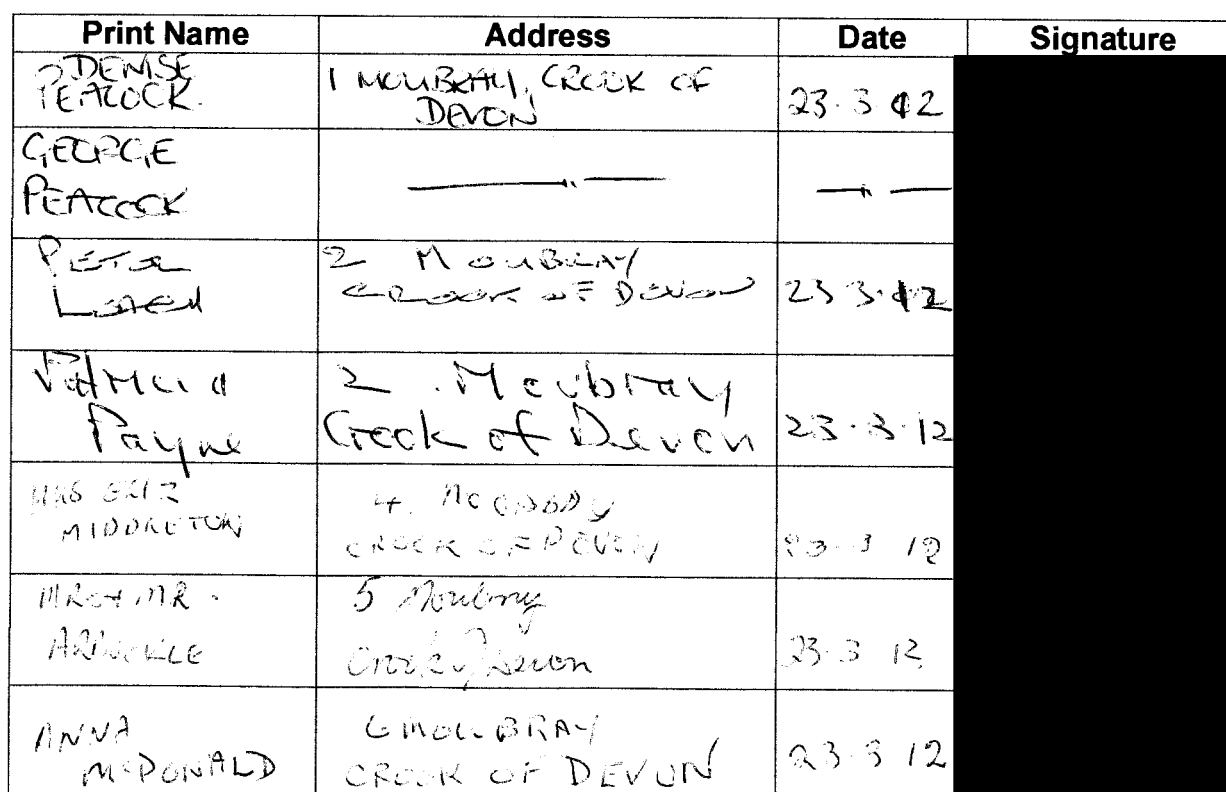 Print Name Address Date Signature
DENISE
PEACOCK.
1 MOUBRAY, CROOK OF
DEVON
23.3 12
GEORGE
PEACOCK
—— " —— — " —
PETER
2 MOUBRAY
CROOK OF DEVON
23 3.12
Patricia
Payne
2. Moubray
Crook of Devon
23.3.12
MRS
MIDDLETON
4.
CROOK OF DEVON
23.3 12
5 Moubray
Crook of Devon
23.3 12
ANNA
McDONALD
6 MOUBRAY
CROOK OF DEVON
23.3 12